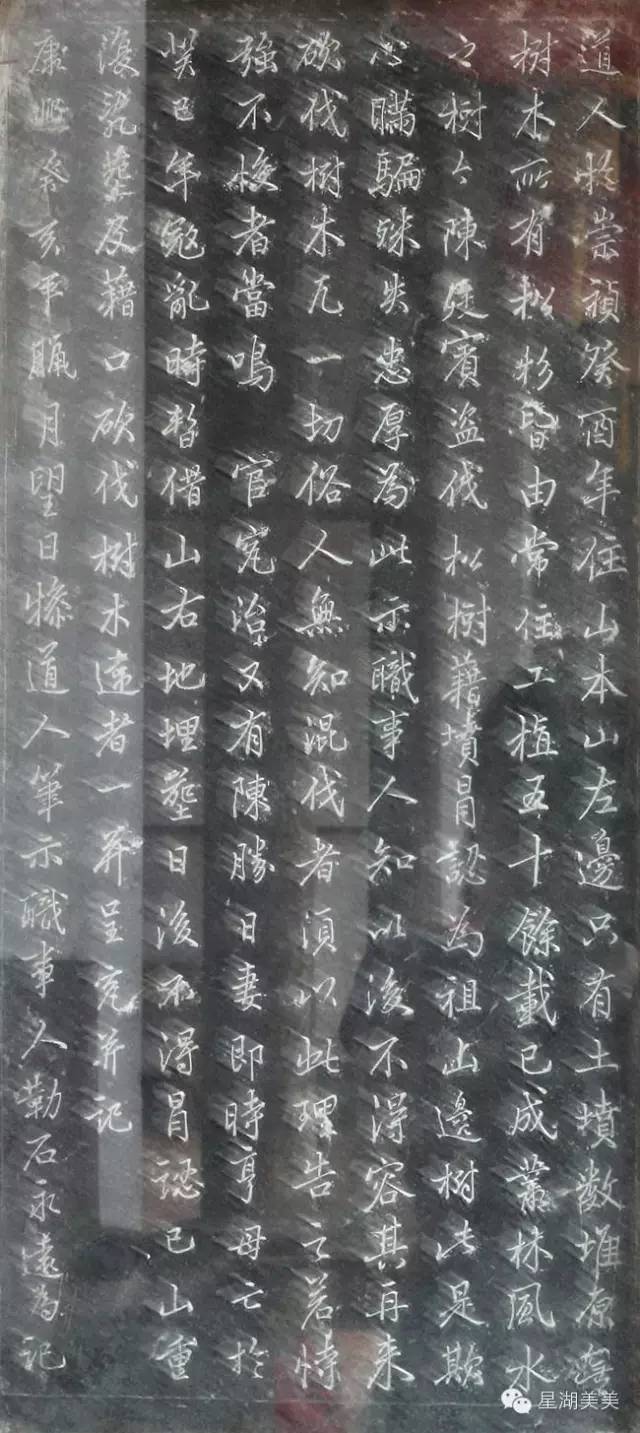 道人於崇禎癸酉年住山本山左邊只有土墳數堆原無
樹木所有松杉皆由常住工植五十餘載已成叢林風水
之樹今陳廷賓盜伐松樹藉墳冒認為祖山邊樹此是欺
心瞞騙殊失忠厚為此示職事人知以後不得容其再来
砍伐樹木凡一切俗人無知混伐者須以此理告之若恃
強不悛者當鳴 官究治又有陳勝日妻即時亨母亡於
癸巳年寇亂時暫借山右地埋塟日後不得冒認已山重
復亂塟及藉口砍伐樹木違者一并呈究并記
康熙癸亥年臘月望日憏道人筆示職事人勒石永遠為記
星湖美美